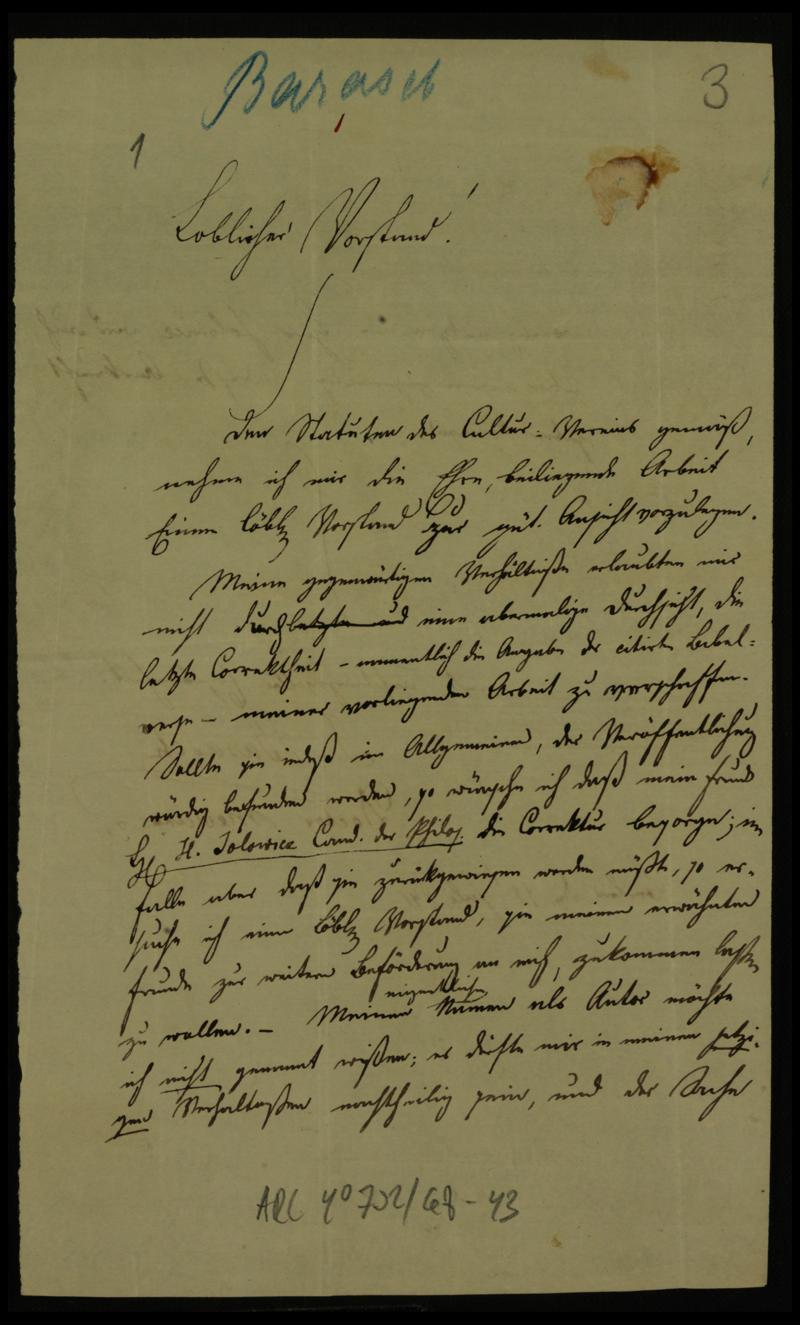 Barasch
3
1
Löblicher Vorstand!
Den Statuten des Cultur-Vereins gemäß,
nehme ich mir die Ehre, beiliegende Arbeit
Einem löbl. Vorstand zur güt. Ansicht vorzulegen.
Meine gegenwärtigen Verhältniße erlaubten mir
nicht durch eine abermalige Durchsicht, die
letzte Correktheit – namentlich die Angabe der citirten Bibel-
verse – meiner vorliegenden Arbeit zu verschaffen.
Sollte sie indeß im Allgemeinen, der Veröffentlichung
würdig befunden werden, so wünsche ich daß mein Freund
H. Jolowicz Cand. der Philos. die Correktur besorge; im
falle aber daß sie zurückgewiesen werden müßte, so er-
suche ich einen Löbl. Vorstand, sie meinem erwähnten
Freunde zur weitern Beförderung an mich, zukommen laßen
zu wollen. – Meinen eigentlichen Namen als Autor möchte
ich nicht genannt wißen; es dürfte mir in meinen jetzi-
gen Verhältnißen nachtheilig sein, und der Sache
ARC 4° 792/G8-43